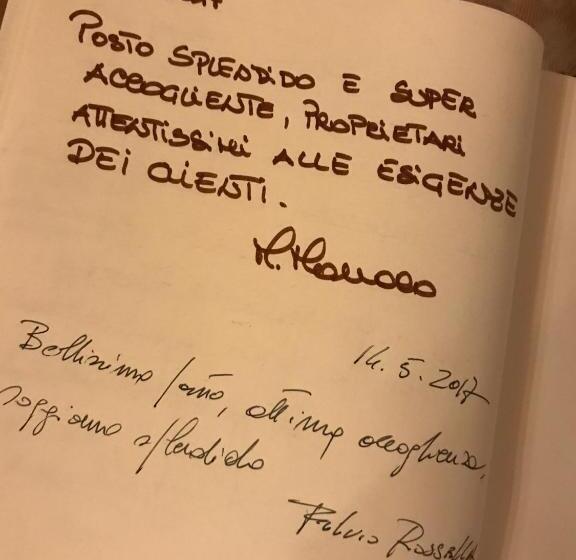 POSTO SPLENDIDO E SUPER
ACCOGLIENTE, PROPRIETARI
ATTENTISSIMI ALLE ESIGENZE
DEI CLIENTI.
14.5.2017
Bellissimo posto, ottima accoglienza,
soggiorno splendido
Fulvio